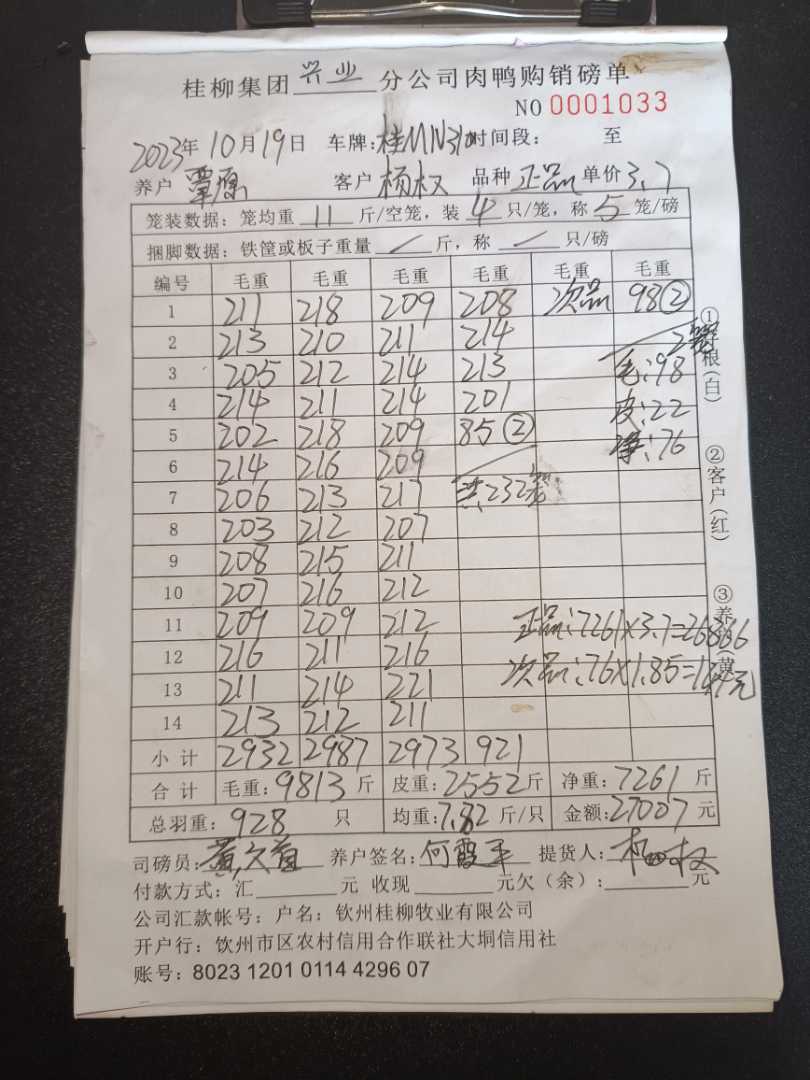 桂柳集团 兴业 分公司肉鸭购销磅单
NO 0001033
2023年 10月 19日 车牌:桂MN310 时间段: 至
养户 覃原 客户 杨权 品种 正品 单价 3.7
笼装数据: 笼均重 11 斤/空笼,装 4 只/笼,称 5 笼/磅
捆脚数据: 铁筐或板子重量 / 斤,称 / 只/磅
编号 毛重 毛重 毛重 毛重 毛重 毛重
1 211 218 209 208 次品 98②
2 213 210 211 214 2笼
3 205 212 214 213 毛:98
4 214 211 214 201 皮:22
5 202 218 209 85② 净:76
6 214 216 209
7 206 213 217 共232笼
8 203 212 207
9 208 215 211
10 207 216 212
11 209 209 212 正品:7261×3.7=26866
12 216 211 216 次品:76×1.85=141元
13 211 214 221
14 213 212 211
小计 2932 2987 2973 921
合计 毛重:9813斤 皮重:2552斤 净重:7261斤
总羽重:928 只 均重:7.82斤/只 金额:27007元
司磅员: 养户签名:何霞平 提货人:杨权
付款方式:汇 元 收现 元欠(余): 元
公司汇款帐号:户名:钦州桂柳牧业有限公司
开户行:饮州市区农村信用合作联社大垌信用社
账号:8023 1201 0114 4296 07
①存根(白)
②客户(红)
③养户(黄)